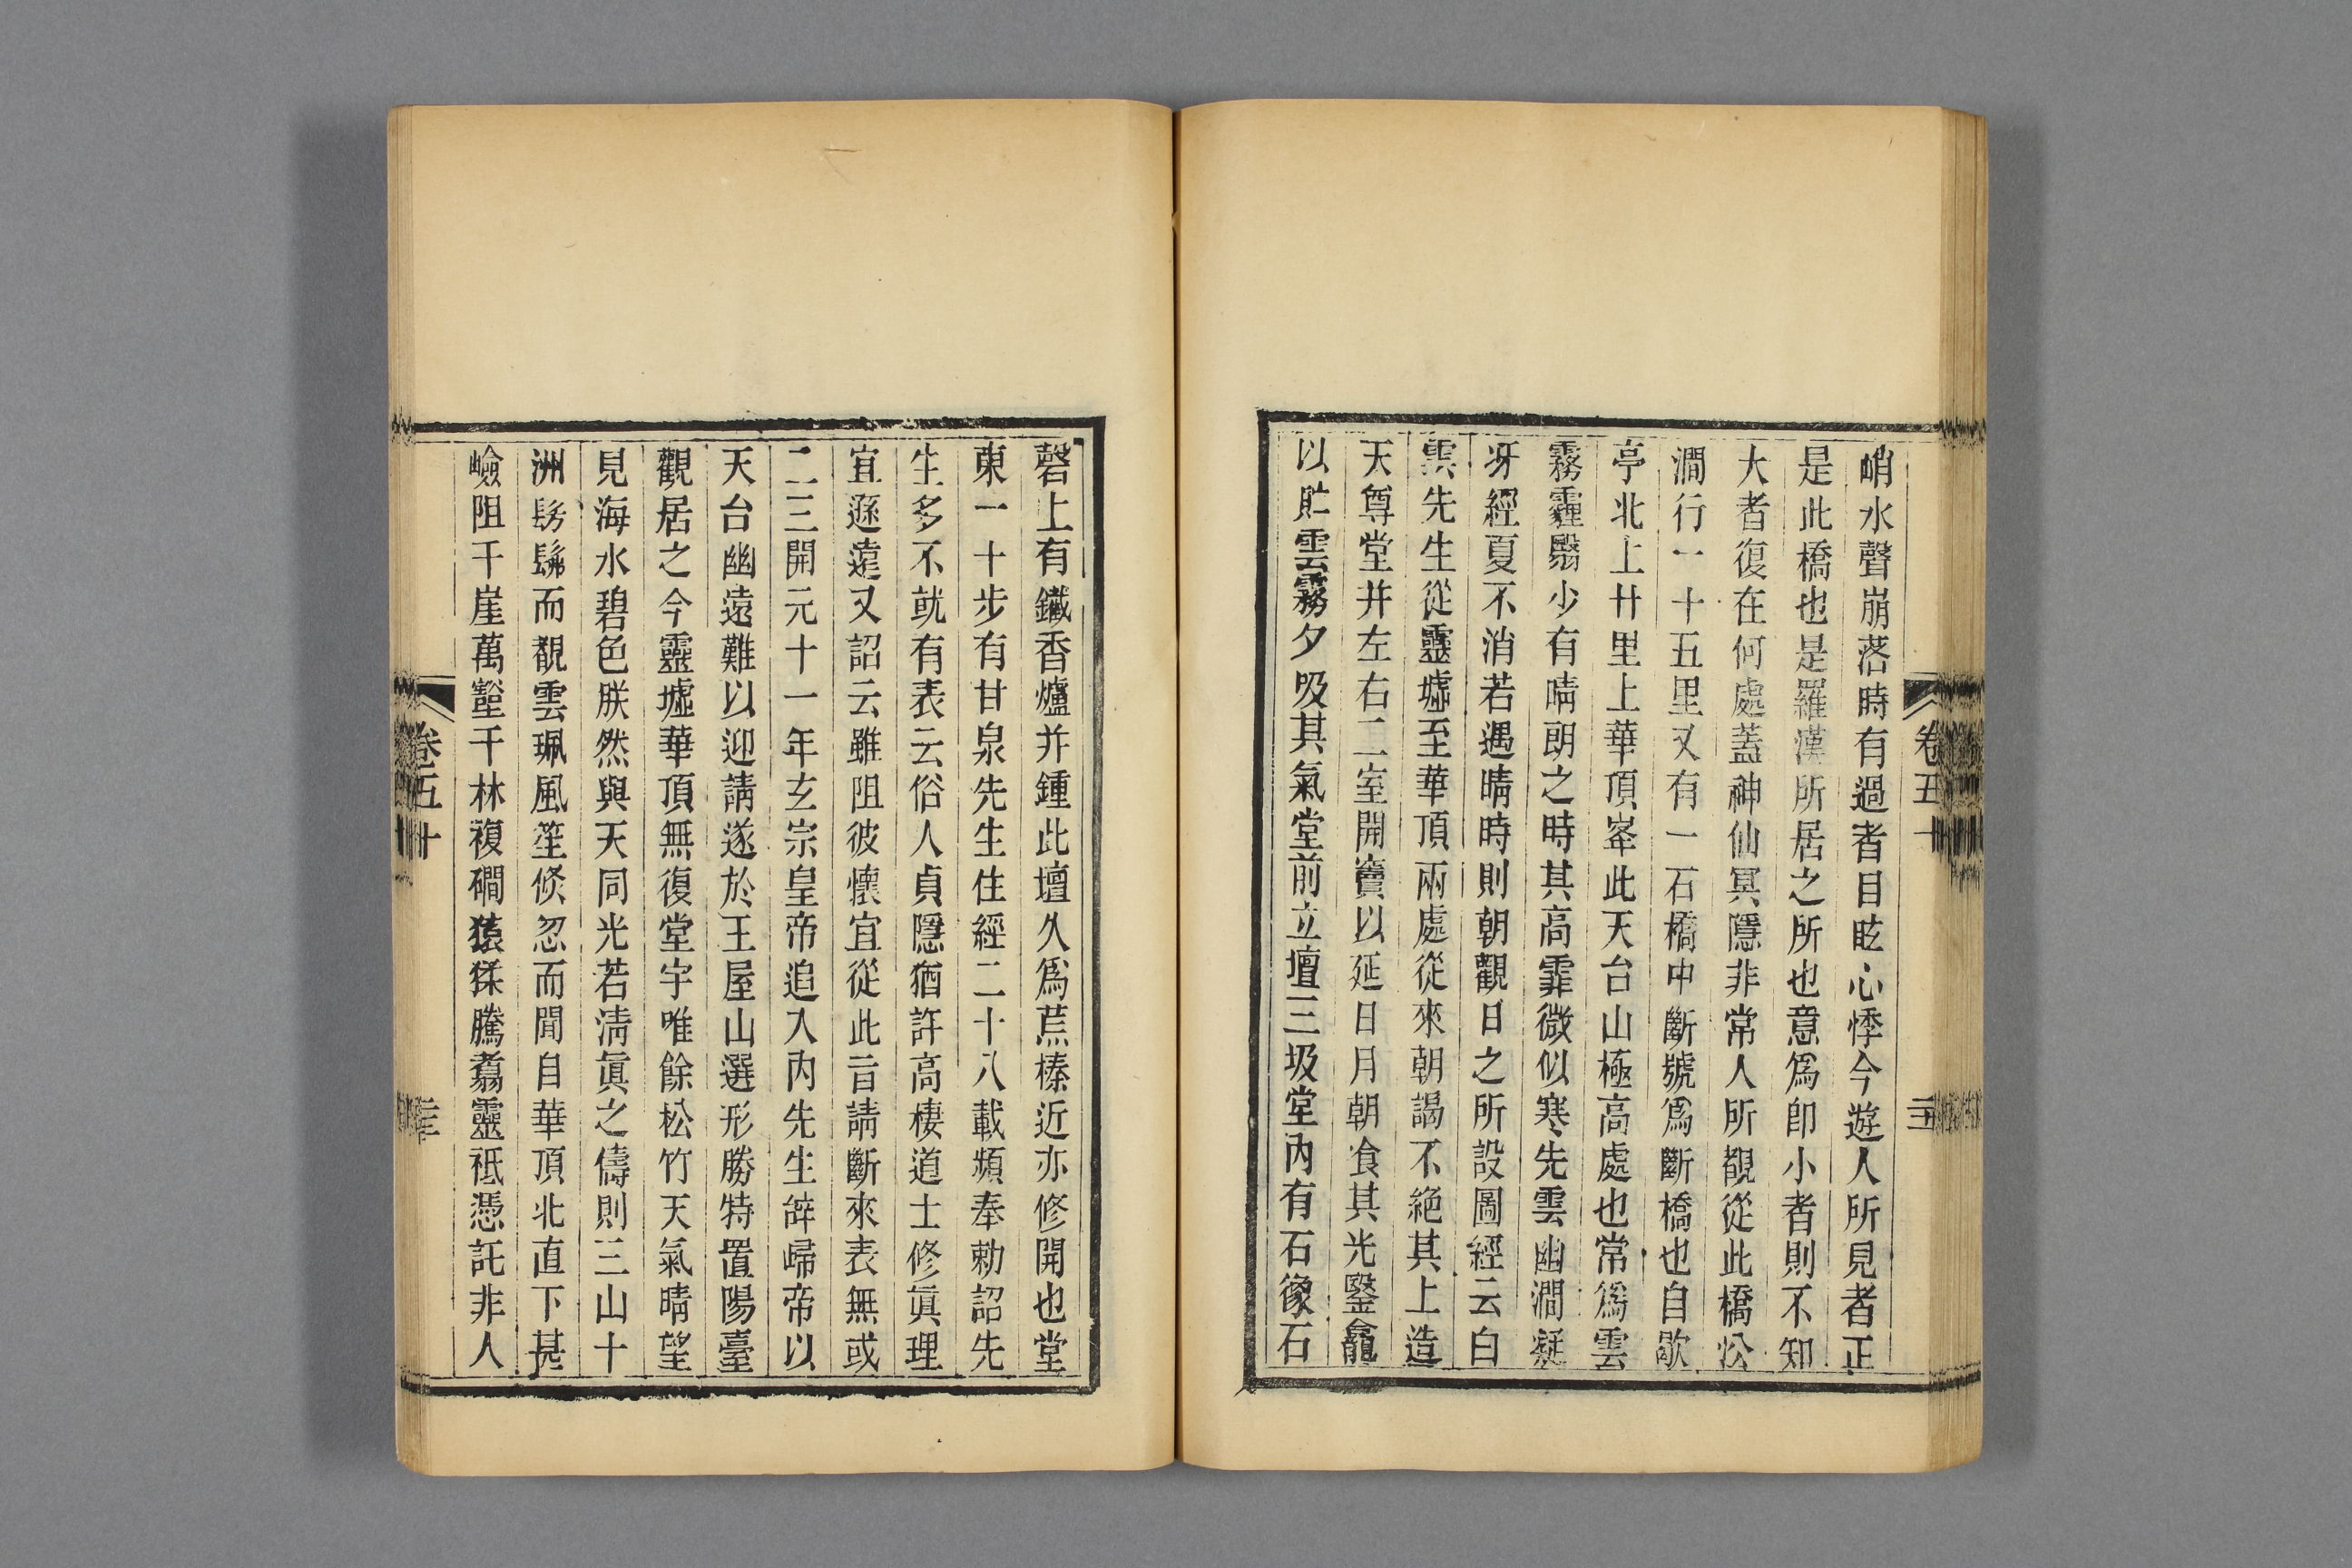 峭水聲崩落時有過者目眩心悸今遊人所見者正
是此橋也是羅漢所居之所也意爲卽小者則不知
大者復在何處蓋神仙冥隱非常人所覩從此橋㳂
澗行一十五里又有一石橋中斷號爲斷橋也自歇
亭北上廿里上華頂峯此天台山極高處也常爲雲
霧霾翳少有晴朗之時其高霏微似寒先雲幽澗凝
冴經夏不消若遇晴時則朝觀日之所設圖經云白
雲先生從靈墟至華頂兩處從來朝謁不絕其上造
天尊堂并左右二室開竇以延日月朝飡其光鑿龕
以貯雲霧夕吸其氣堂前立壇三圾堂內有石像石
磬上有鐵香爐并鍾此壇久爲荒榛近亦修開也堂
東一十步有甘泉先生住經二十八載頻奉勅詔先
生多不就有表云俗人貞隱猶許高棲道士修眞理
宜遜遠又詔云雖阻彼懷宜從此旨請斷來表無或
二三開元十一年玄宗皇帝追入內先生辭歸帝以
天台幽遠難以迎請遂於王屋山選形勝特置陽臺
觀居之今靈墟華頂無復堂宇唯餘松竹天氣晴望
見海水碧色朕然與天同光若清眞之儔則三山十
洲髣髴而覩雲珮風笙倏忽而聞自華頂北直下甚
嶮阻千崖萬壑千林複磵猿猱騰翥靈祗憑託非人
卷五十
卷五十